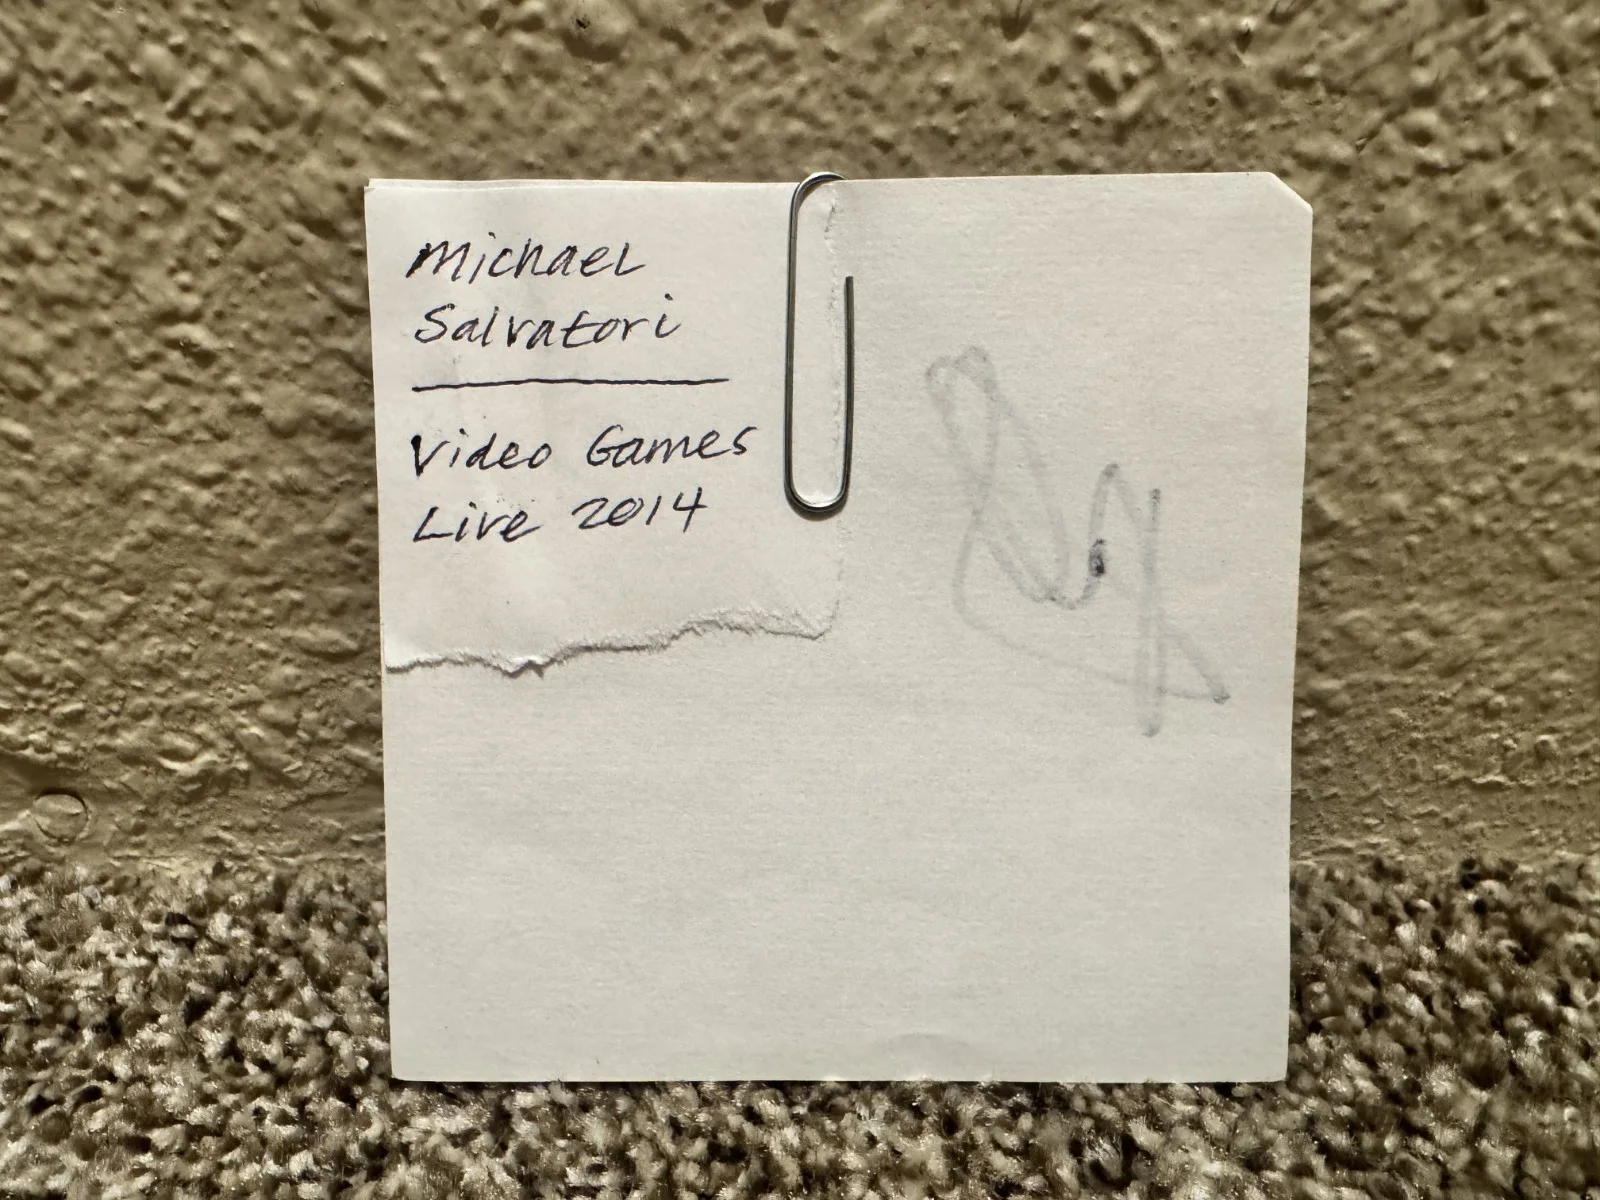 Michael
Salvatori
Video Games
Live 2014